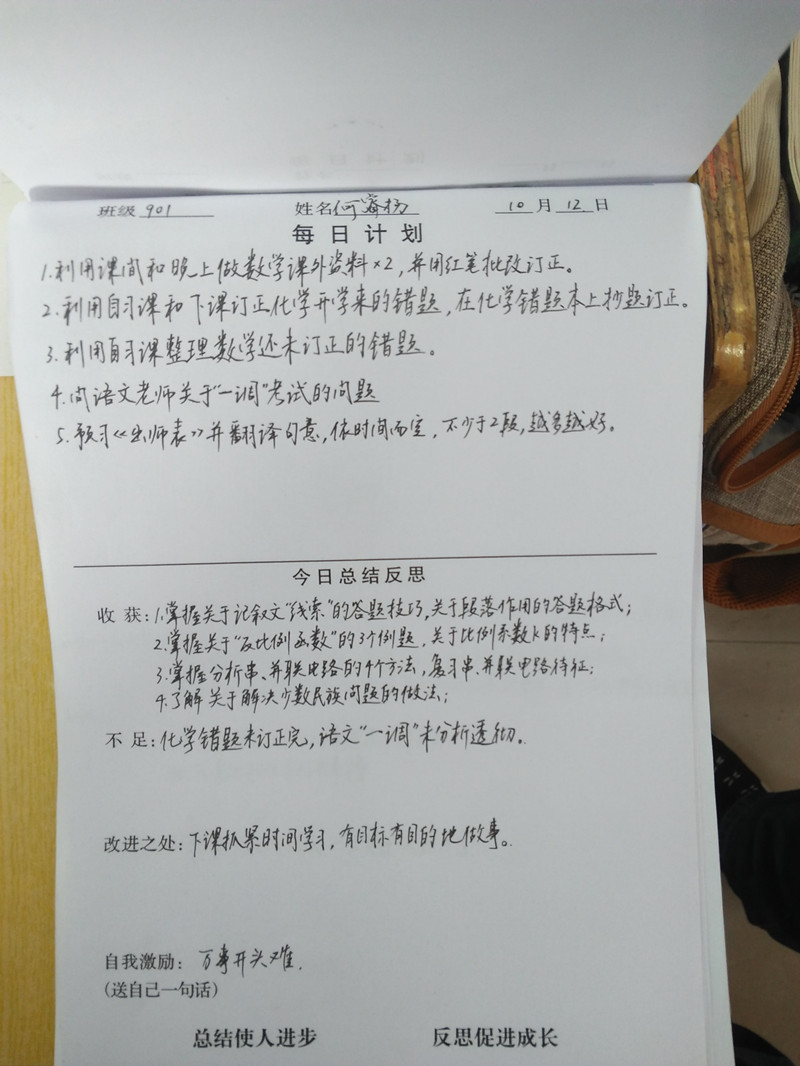 班级 901 姓名 何睿杨 10 月 12 日
每日计划
1.利用课间和晚上做数学课外资料×2,并用红笔批改订正。
2.利用自习课和下课订正化学开学来的错题,在化学错题本上抄题订正。
3.利用自习课整理数学还未订正的错题。
4.问语文老师关于“一调”考试的问题
5.预习《出师表》并翻译句意,依时间而定,不少于2段,越多越好。
今日总结反思
收 获:1.掌握关于记叙文“线索”的答题技巧,关于段落作用的答题格式;
2.掌握关于“反比例函数”的3个例题,关于比例系数k的特点;
3.掌握分析串、并联电路的4个方法,复习串、并联电路特征;
4.了解关于解决少数民族问题的做法;
不 足:化学错题未订正完,语文“一调”未分析透彻。
改进之处:下课抓累时间学习,有目标有目的地做事。
自我激励: 万事开头难.
(送自己一句话)
总结使人进步 反思促进成长